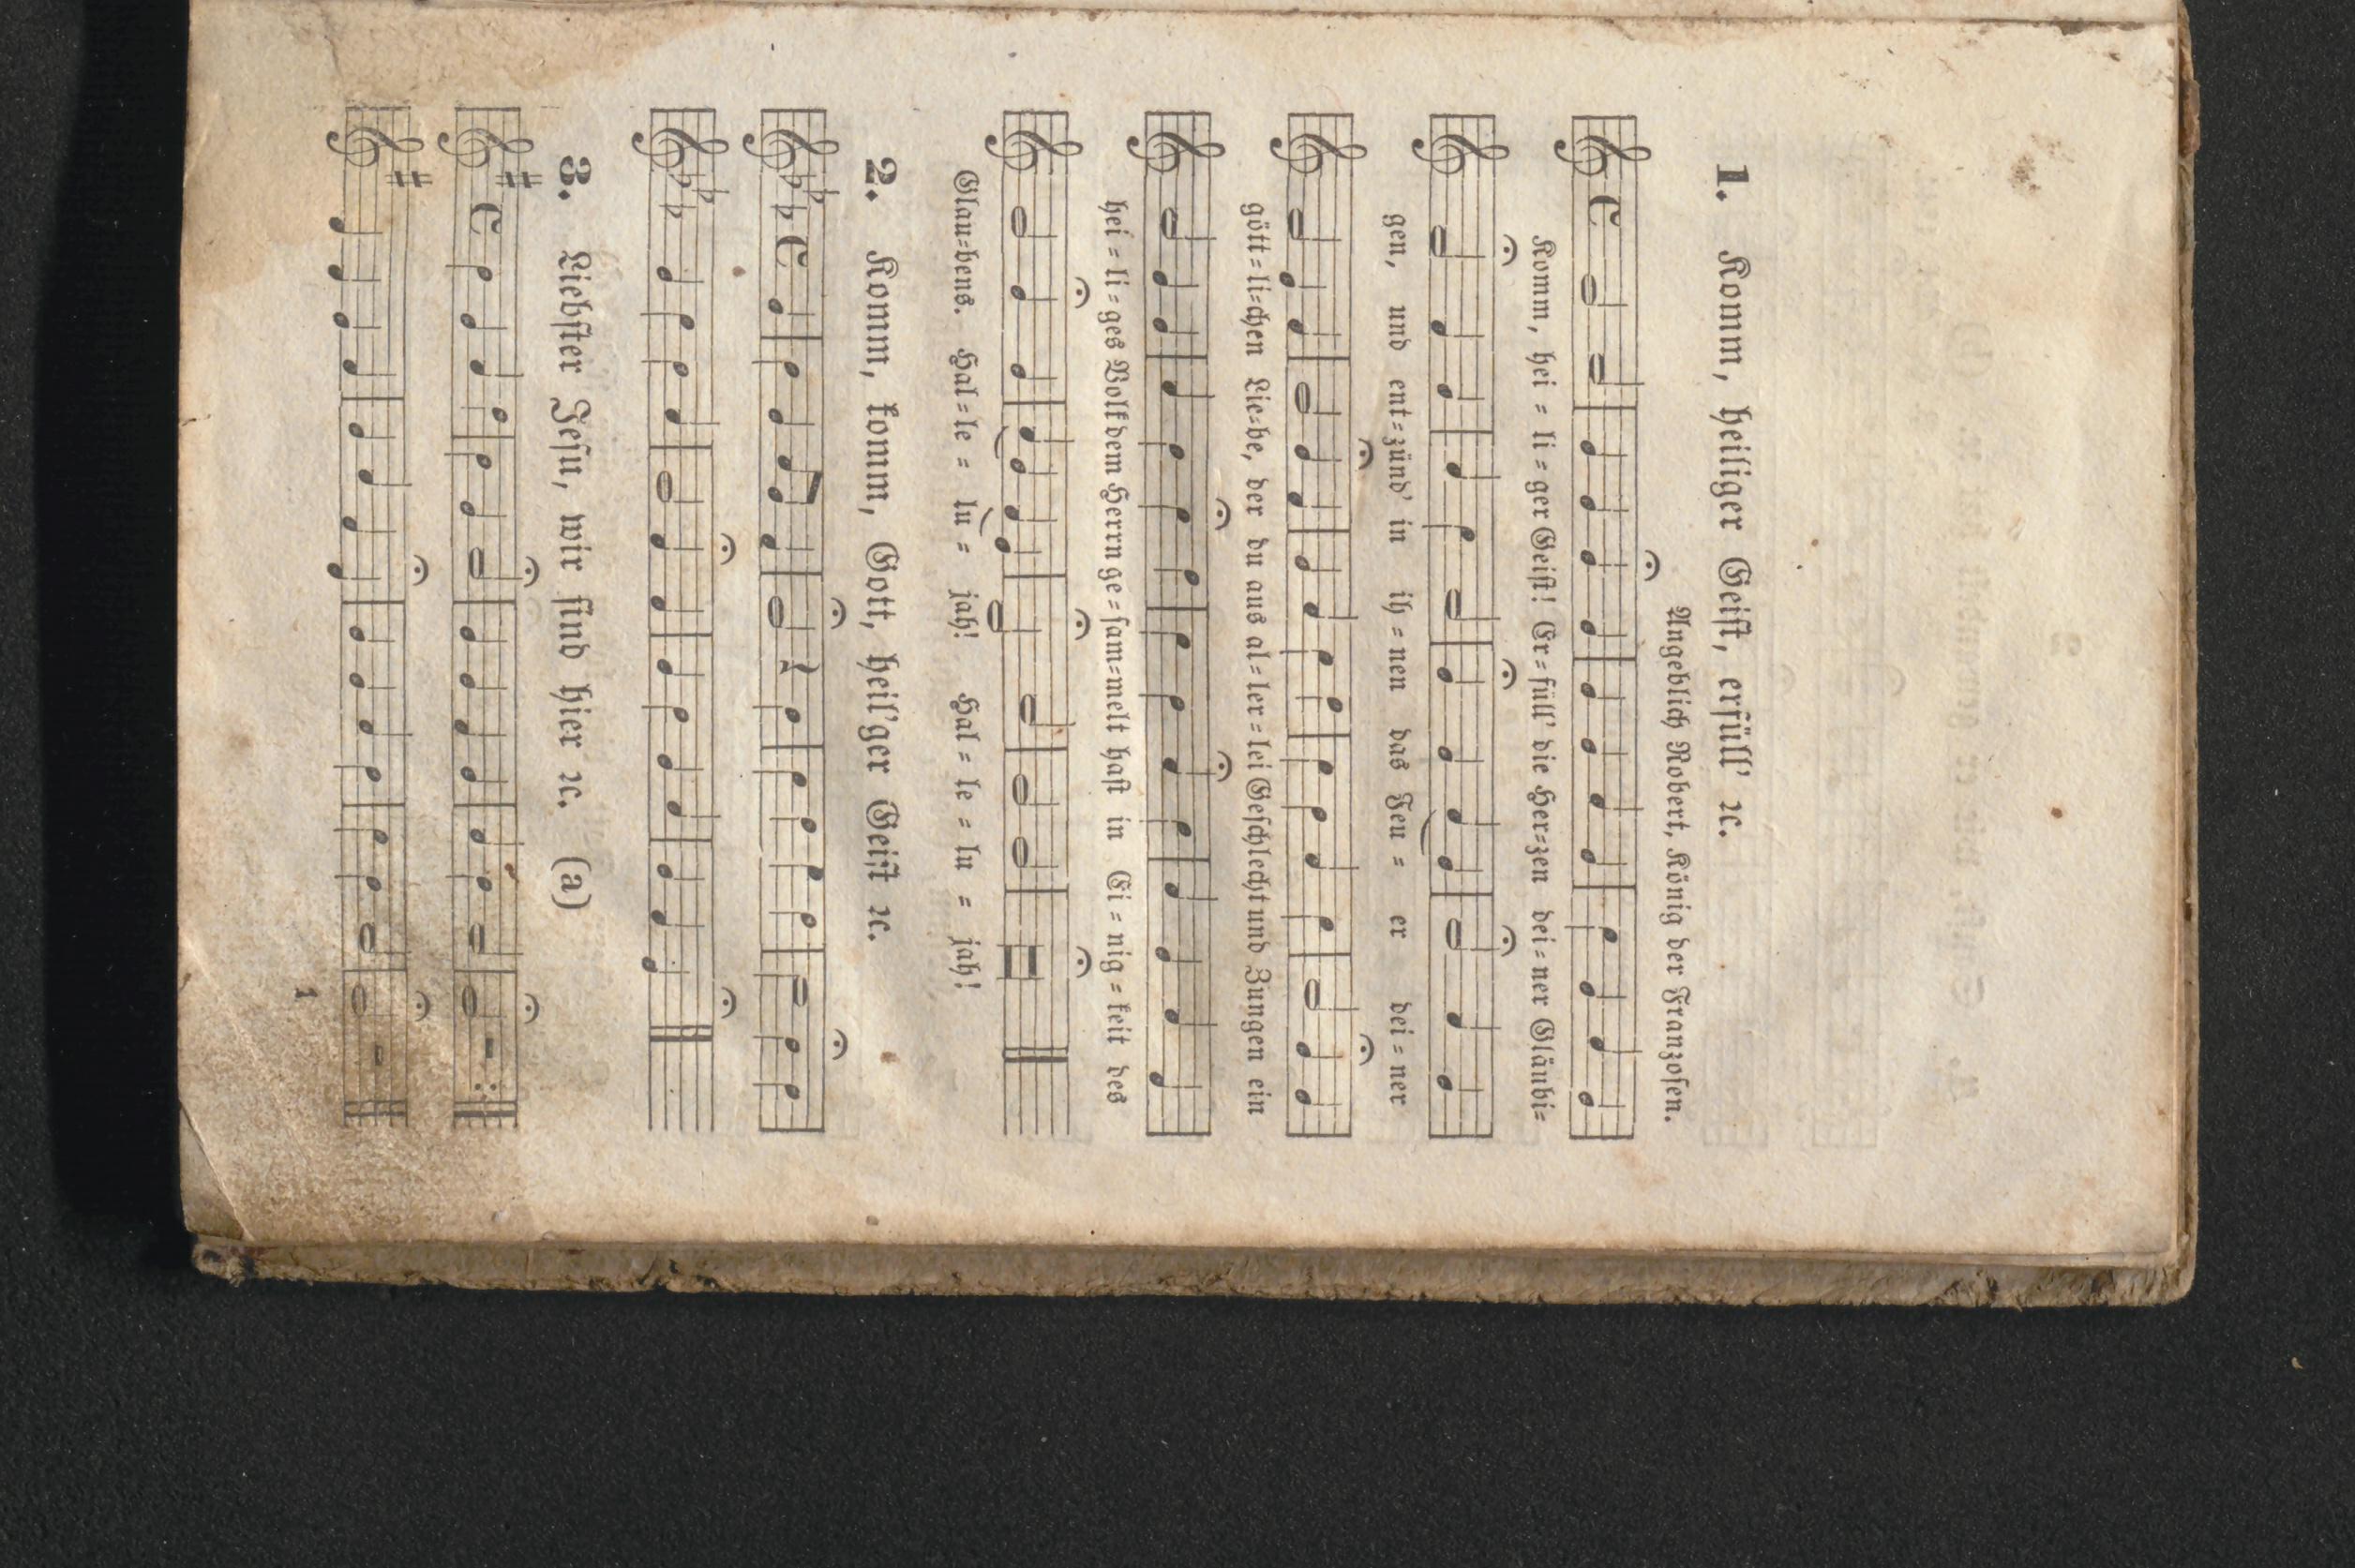 1. Komm, heiliger Geist, erfüll' ꝛc.
Angeblich Robert, König der Franzosen.
Komm, hei = li = ger Geist! Er=füll' die Her=zen dei=ner Gläubi=
gen, und ent=zünd' in ih=nen das Feu = er dei=ner
gött=li=chen Lie=be, der du aus al=ler=lei Geschlecht und Zungen ein
hei = li = ges Volk dem Herrn ge=sam=melt hast in Ei = nig = keit des
Glau=bens. Hal=le = lu = jah! Hal = le = lu = jah!
2. Komm, komm, Gott, heil'ger Geist ꝛc.
3. Liebster Jesu, wir sind hier ꝛc. (a)
1